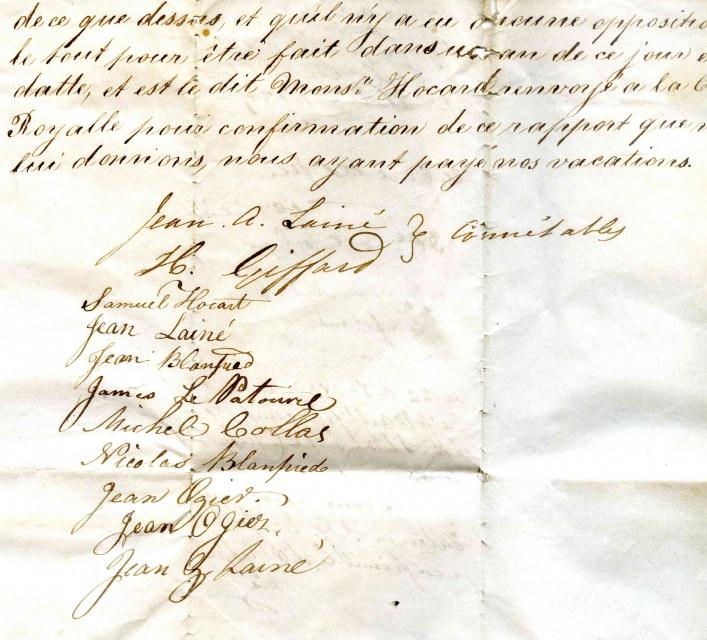 de ce que dessus, et qu'il n'y a eu aucune oppositio
le tout pour être fait dans un an de ce jour e
datte, et est le dit Monsr. Hocard renvoyé a la C
Royalle pour confirmation de ce rapport que n
lui donnons, nous ayant payé nos vacations.
Jean A. Lainé } Connétables
H. Giffard
Samuel Hocart
Jean Lainé
Jean Blanpied
James Le Patourel
Michel Collas
Nicolas Blanpied
Jean Ogier.
Jean Ogier,
Jean Lainé